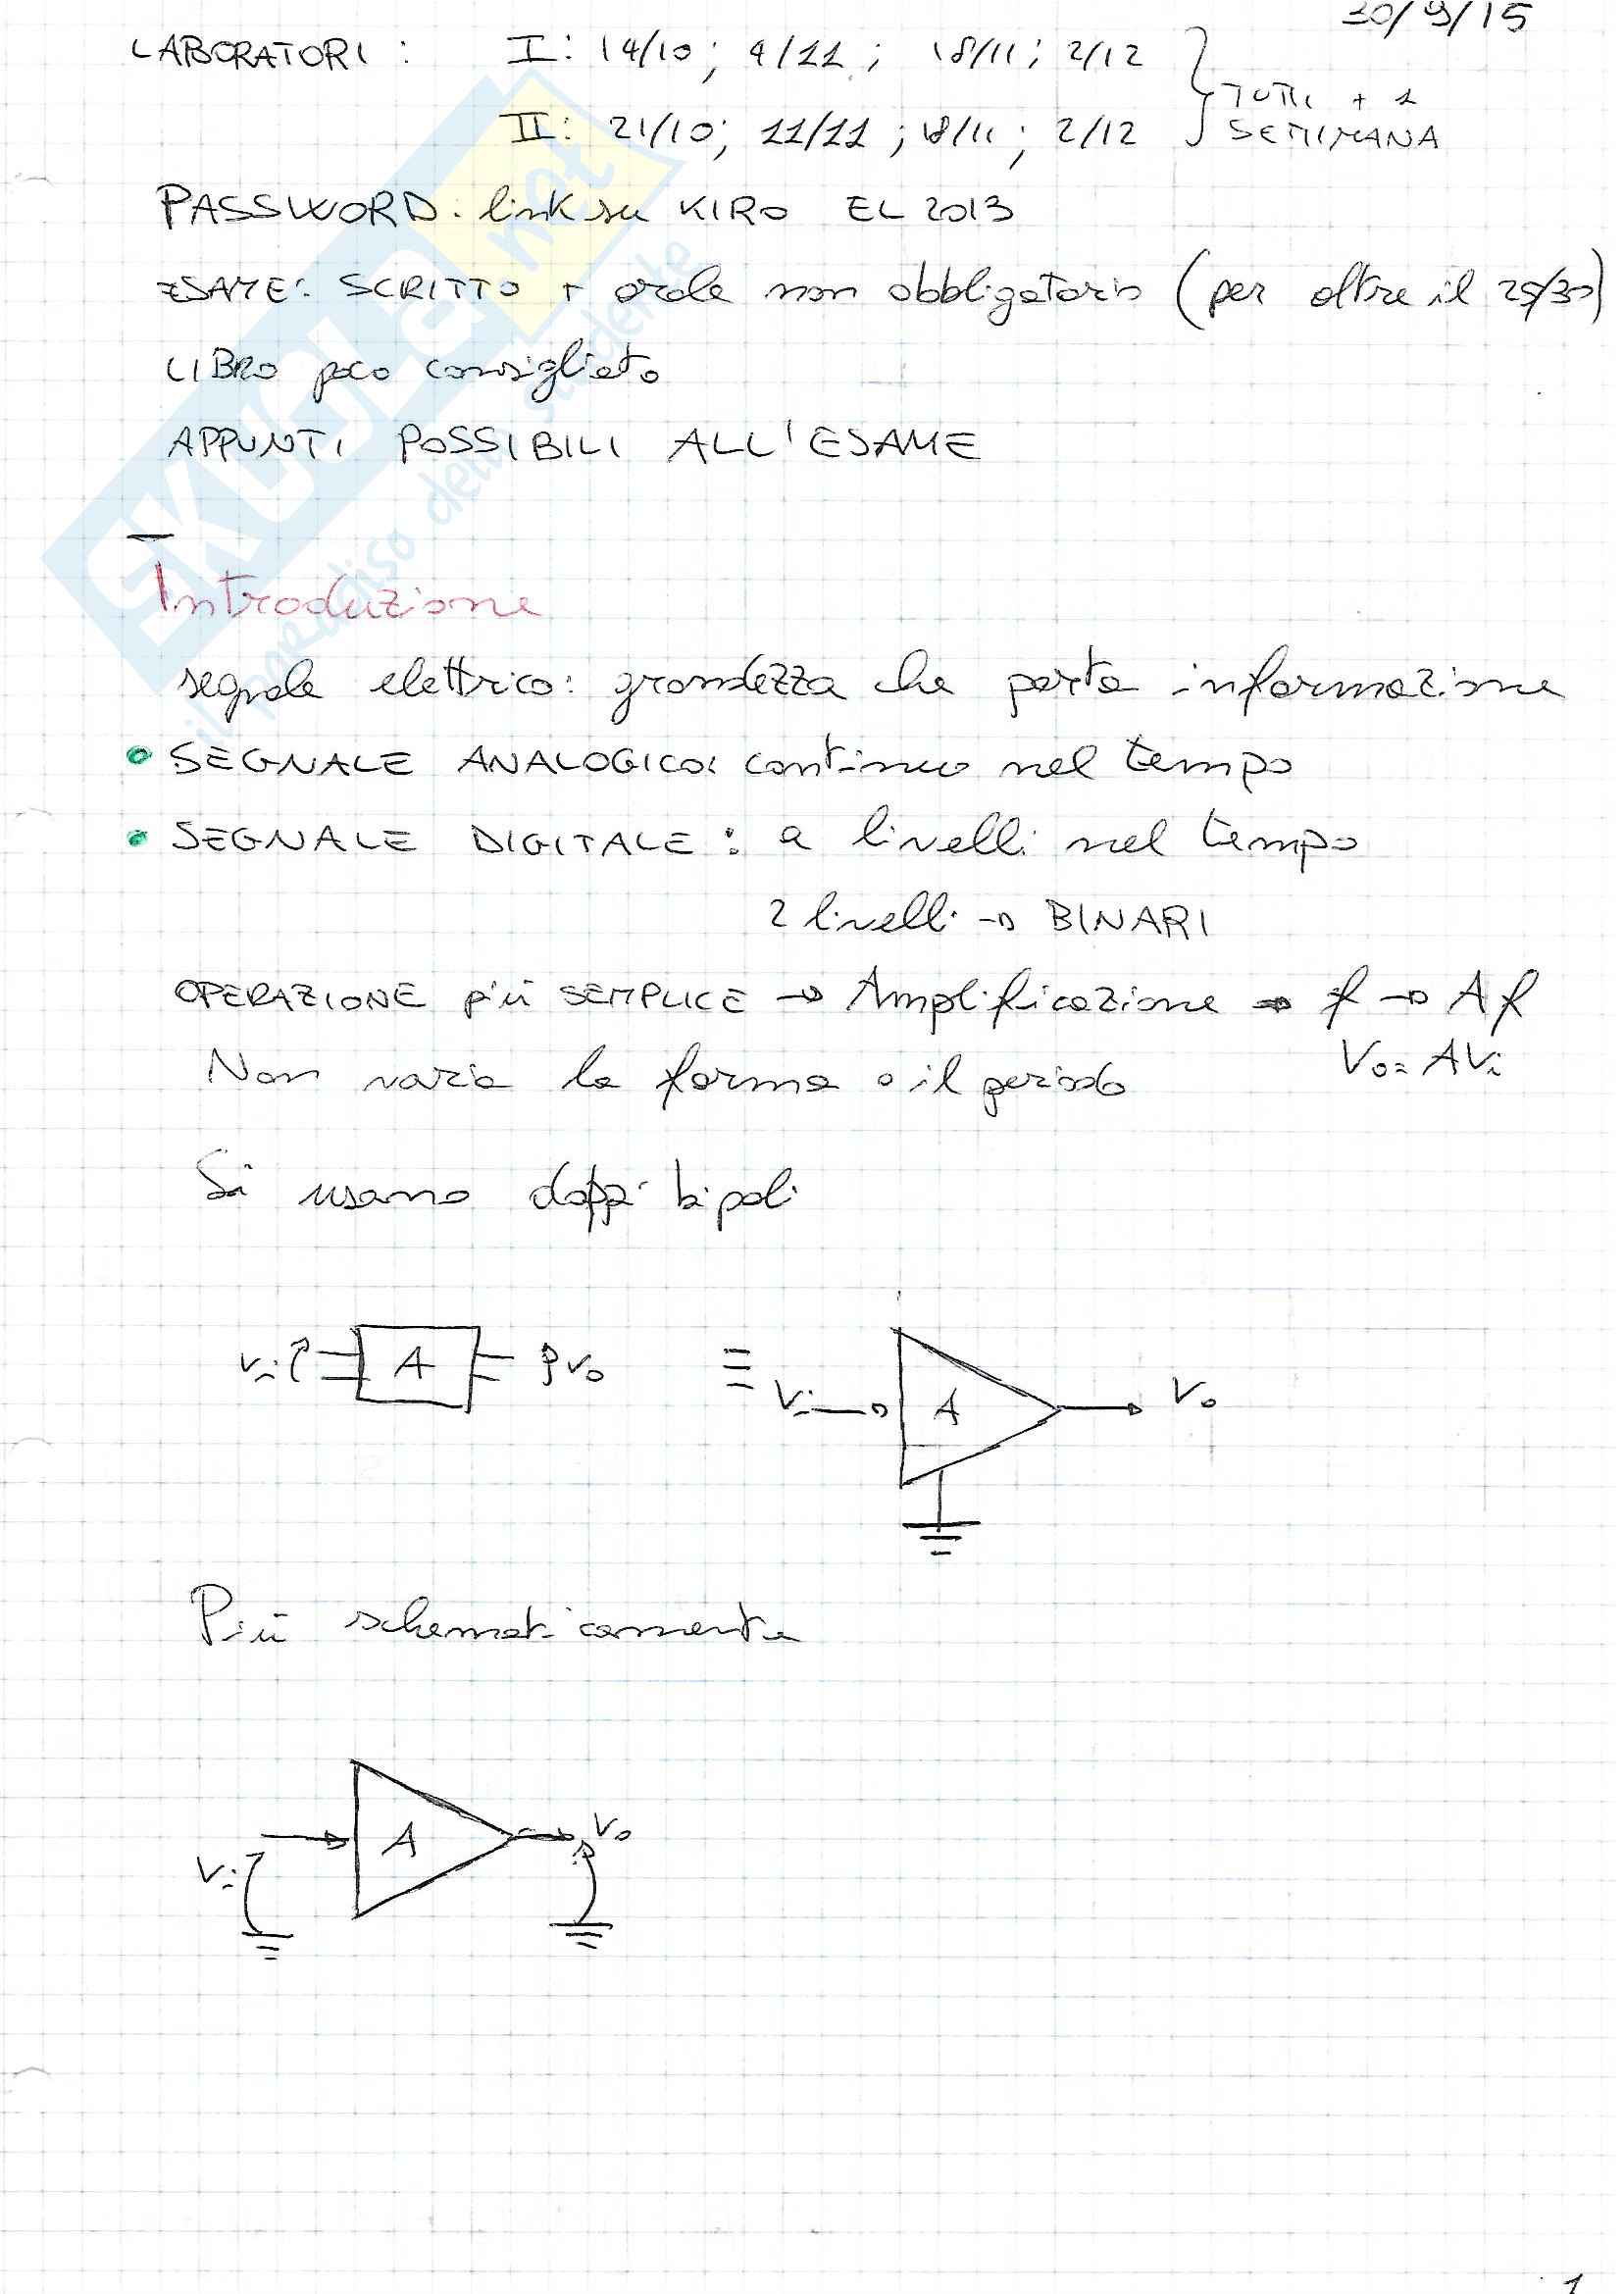 30/9/15
LABORATORI : I: 14/10; 4/11; 18/11; 2/12
TUTTI + 1
II: 21/10; 11/11; 18/11; 2/12
SETTIMANA
PASSWORD: link su KIRO EL2013
ESAME: SCRITTO + orale non obbligatorio (per oltre il 25/30)
LIBRO poco consigliato
APPUNTI POSSIBILI ALL'ESAME
Introduzione
segnale elettrico: grandezza che porta informazione
• SEGNALE ANALOGICO: continuo nel tempo
• SEGNALE DIGITALE: a livelli nel tempo
2 livelli → BINARI
OPERAZIONE più SEMPLICE → Amplificazione → f → Af
Vo = AVi
Non varia la forma o il periodo
Si usano doppi bipoli
Vi A Vo ≡ Vi A Vo
Più schematicamente
A Vo
Vi
1
SKUOLA.net
il paradiso dello studente